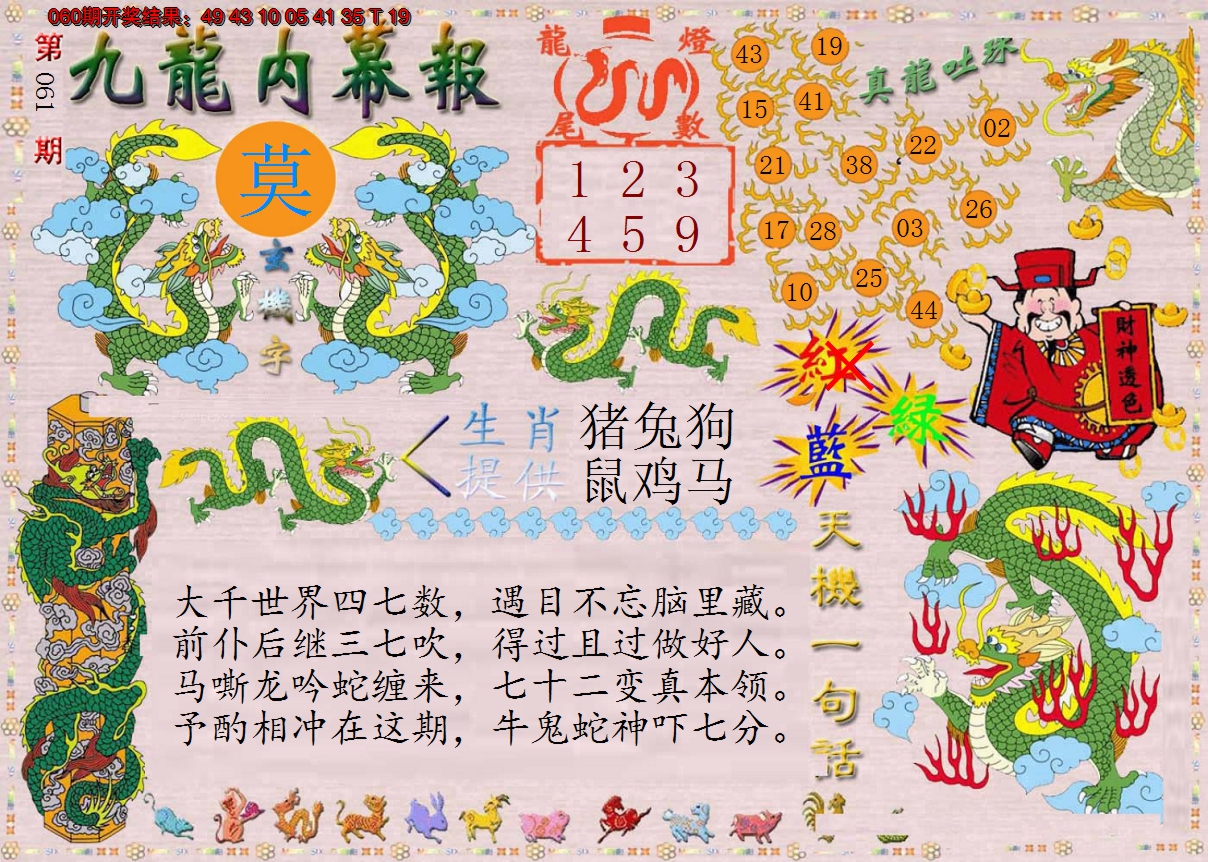 060期开奖结果：49 43 10 05 41 35 T 19
第
061
期
九龍内幕報
莫
玄
機
字
龍 燈
尾 數
1 2 3
4 5 9
真龍吐珠
43 19
15 41
21 38 22 02
17 28 03 26
10 25 44
紅
綠
藍
財神透色
生肖
提供
猪兔狗
鼠鸡马
天機一句话
大千世界四七数，遇目不忘脑里藏。
前仆后继三七吹，得过且过做好人。
马嘶龙吟蛇缠来，七十二变真本领。
予酌相冲在这期，牛鬼蛇神吓七分。